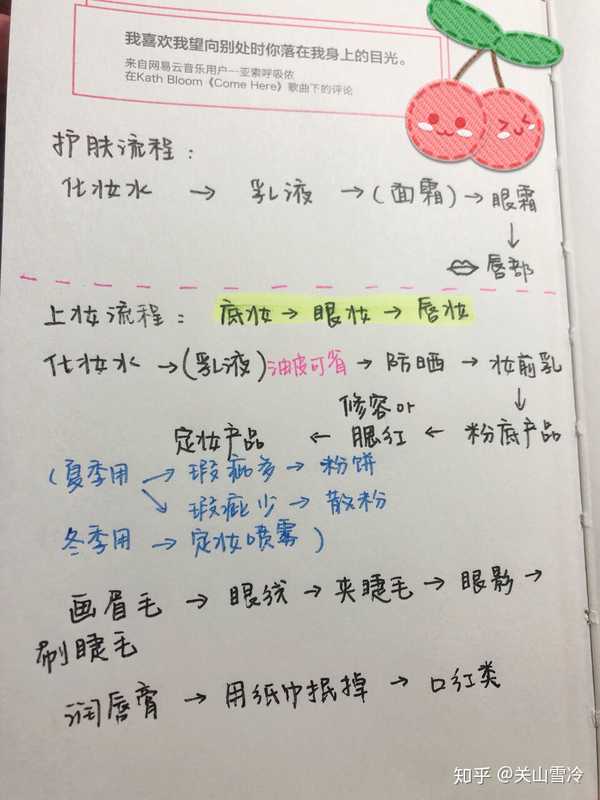 我喜欢我望向别处时你落在我身上的目光。
来自网易云音乐用户--亚索呼吸侬
在Kath Bloom《Come Here》歌曲下的评论
护肤流程：
化妆水 → 乳液 → (面霜) → 眼霜
↓
唇部
上妆流程： 底妆 → 眼妆 → 唇妆
化妆水 → (乳液) 油皮可省 → 防晒 → 妆前乳
↓
粉底产品 → 修容or腮红 → 定妆产品
(夏季用 → 瑕疵多 → 粉饼
↘ 瑕疵少 → 散粉
冬季用 → 定妆喷雾)
画眉毛 → 眼线 → 夹睫毛 → 眼影 →
刷睫毛
润唇膏 → 用纸巾抿掉 → 口红类
知乎 @关山雪冷